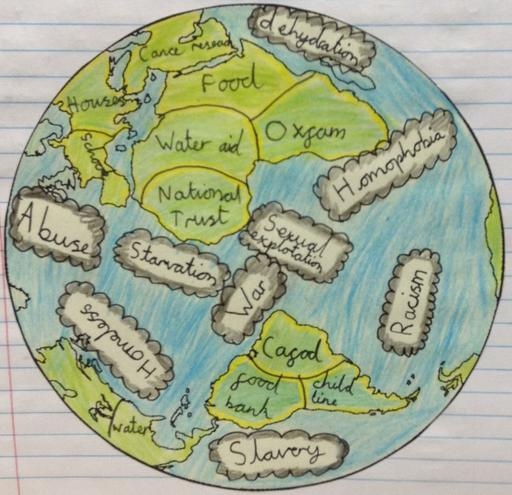 dehydration
Cance research
Food
Houses
Water aid
Oxgam
School
Homophobia
National
Trust
Abuse
Sexual
exploitation
Starvation
War
Racism
Homeless
Cagod
food
bank
child
line
water
Slavery